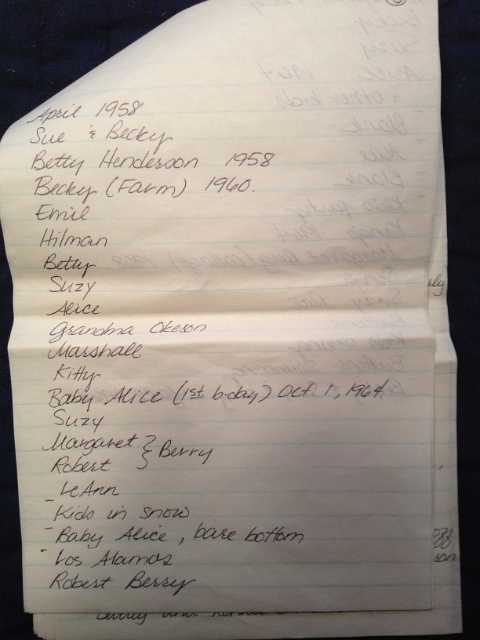 April 1958
Sue & Becky
Betty Henderson 1958
Becky (Farm) 1960.
Emil
Hilman
Betty
Suzy
Alice
Grandma Okeson
Marshall
Kitty
Baby Alice (1st b-day) Oct. 1, 1964
Suzy
Margaret } Berry
Robert
- LeAnn
Kids in snow
- Baby Alice, bare bottom
- Los Alamos
Robert Berry